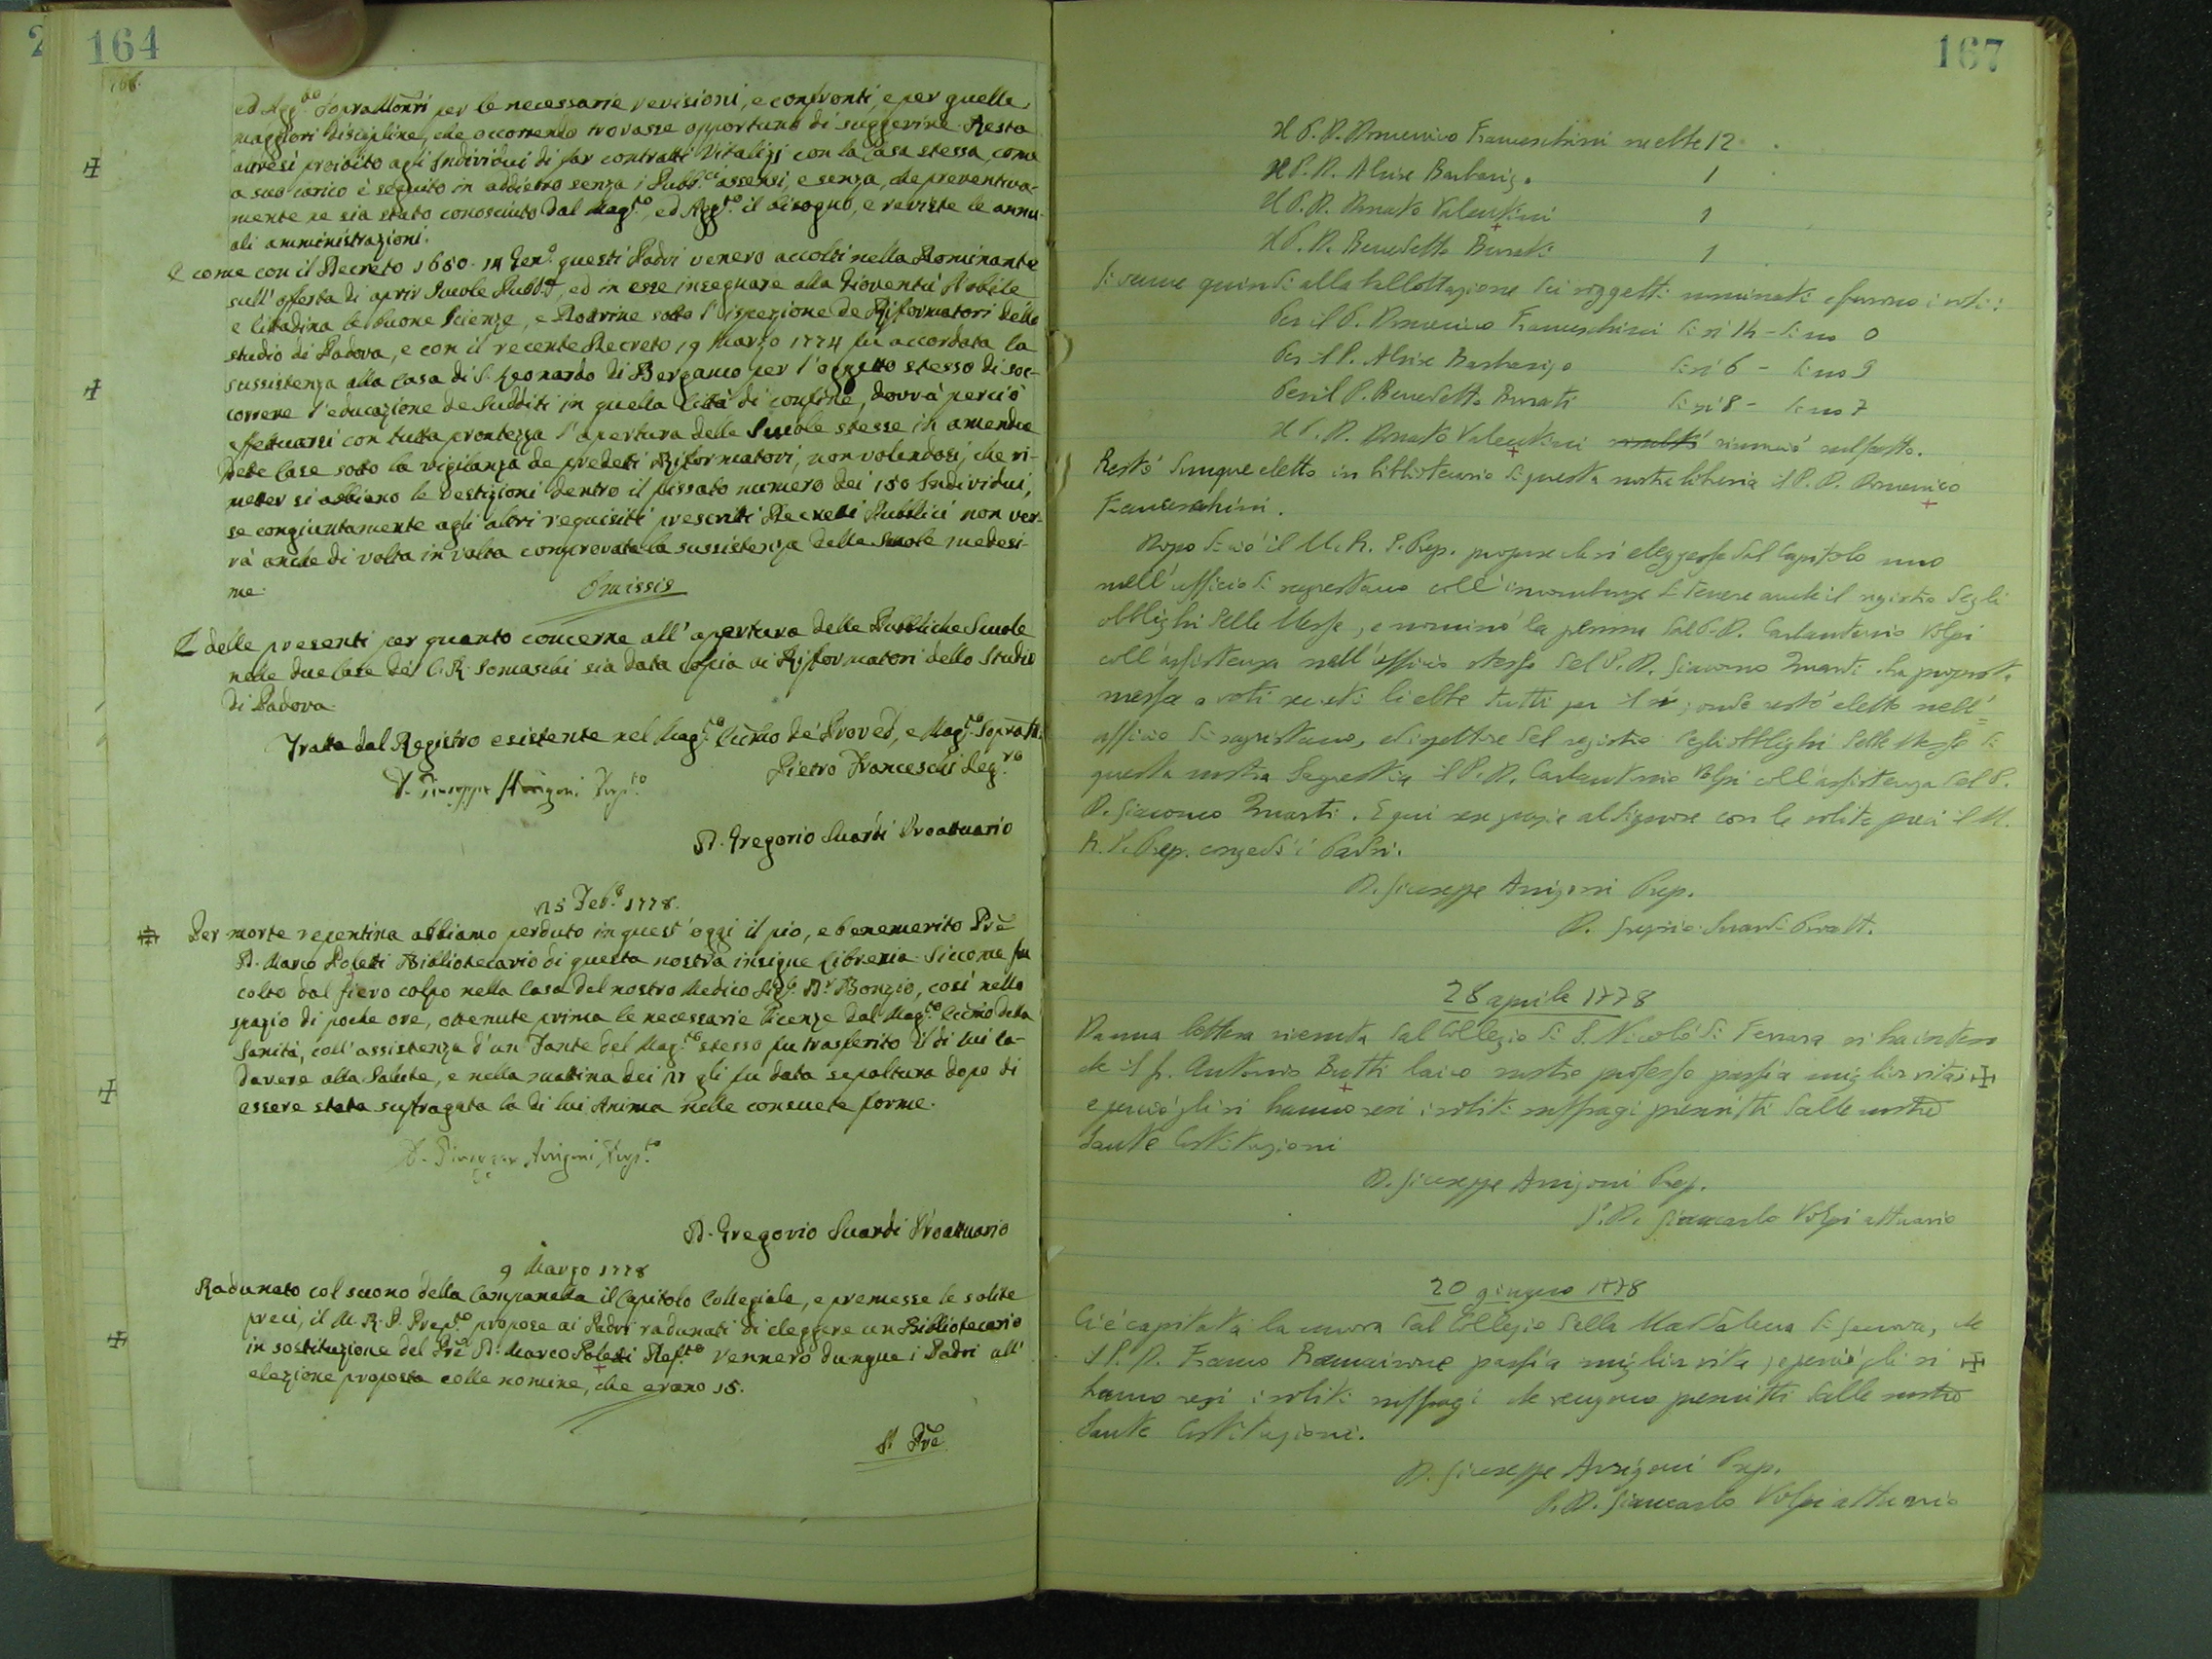 2
164
166.
ed Agg.to Sopra Mon.ri per le necessarie revisioni, e confronti, e per quelle
maggiori discipline, che occorrendo trovasse opportuno di suggerire. Resta
altresì proibito agli Individui di far contratti Vitalizj con la Casa stessa, come
a suo carico è seguito in addietro senza i Pubb.ci assensi, e senza, che preventiva-
mente ne sia stato conosciuto dal Mag.to, ed Agg.to il bisogno, e reviste le annu-
ali amministrazioni.
E come con il Decreto 1650. 14 Gen.o questi Padri venero accolti nella Dominante
sull'offerta di aprir Scuole Pubb.e, ed in esse insegnare alla Gioventù Nobile
e Cittadina le buone Scienze, e Dottrine sotto l'ispezione de Riformatori dello
studio di Padova, e con il recente Decreto 19 Marzo 1774 fu accordata la
sussistenza alla Casa di S. Leonardo di Bergamo per l'oggetto stesso di soc-
correre l'educazione de Sudditi in quella Città di confine, dovrà perciò
effettuarsi con tutta prontezza l'apertura delle Scuole stesse in amendue
dette Case sotto la vigilanza de predetti Riformatori, non volendosi, che ri-
metter si abbiano le Vestizioni dentro il fissato numero dei 150 Individui,
se congiuntamente agli altri requisiti prescritti Decreti Pubblici non ver-
rà anche di volta in volta comprovata la sussistenza delle Scuole medesi-
me. Omissis
E delle presenti per quanto concerne all'apertura delle Pubbliche Scuole
nelle due Case de' C. R. Somaschi sia data copia ai Riformatori dello Studio
di Padova.
Tratta dal Registro esistente nel Mag.to Ecc.mo de' Proved, e Mag.to Sopra M.
Pietro Franceschi Seg.rio
D. Giuseppe Arrigoni Prep.to
D. Gregorio Suardi Proattuario
25 Feb.o 1778.
Per morte repentina abbiamo perduto in quest'oggi il pio, e benemerito Pre
D. Marco Poletti Bibliotecario di questa nostra insigne Libreria. Siccome fu
colto dal fiero colpo nella Casa del nostro Medico Sig. D.r Bonzio, così nello
spazio di poche ore, ottenute prima le necessarie licenze dal Mag.to Ecc.mo della
Sanità, coll'assistenza d'un Fante del Mag.to stesso fu trasferito il di lui ca-
davere alla Salute, e nella mattina dei 27 gli fu data sepoltura dopo di
essere stata suffragata la di lui Anima nelle consuete forme.
D. Giuseppe Arrigoni Prep.to
D. Gregorio Suardi Proattuario
9 Marzo 1778
Radunato col suono della Campanella il Capitolo Collegiale, e premesse le solite
preci, il M. R. P. Prep.to propose ai Padri radunati di eleggere un Bibliotecario
in sostituzione del Pre D. Marco Poletti Def.to Vennero dunque i Padri all'
elezione proposta colle nomine, che erano 15.
Il Pre
167
Il P. D. Domenico Franceschini ne ebbe 12
Il P. D. Alvise Barbarigo 1
Il P. D. Donato Valentini 1
Il P. D. Benedetto Buratti 1
Si venne quindi alla ballottazione dei soggetti nominati e furono i voti:
Per il P. Domenico Franceschini di sì 14 - di no 0
Per il P. Alvise Barbarigo di sì 6 - di no 9
Per il P. Benedetto Buratti di sì 8 - di no 7
Il P. D. Donato Valentini rinunciò sul fatto.
Restò dunque eletto in bibliotecario di questa nostra libreria il P. D. Domenico
Franceschini.
Dopo di ciò il M. R. P. Prep. propose che si eleggesse dal Capitolo uno
nell'ufficio di sagrestano coll'incombenza di tenere anche il registro degli
obblighi delle Messe, e nominò la persona del P. D. Carlantonio Volpi
coll'assistenza nell'ufficio stesso del P. D. Giacomo Zuanti. La proposta
messa a voti secreti li ebbe tutti per il sì; onde restò eletto nell'
ufficio di sagrestano, ed ispettore del registro degli obblighi delle Messe di
questa nostra Sagrestia il P. D. Carlantonio Volpi coll'assistenza del P.
D. Giacomo Zuanti. E qui rese grazie al Signore con le solite preci il M.
R. P. Prep. congedò i Padri.
D. Giuseppe Arrigoni Prep.
D. Gregorio Suardi Proatt.
28 aprile 1778
Da una lettera ricevuta dal Collegio di S. Nicolò di Ferrara si ha inteso
che il fr. Antonio Butti laico nostro professo passò a miglior vita;
e perciò gli si hanno resi i soliti suffragi prescritti dalle nostre
Sante Costituzioni
D. Giuseppe Arrigoni Prep.
P. D. Giancarlo Volpi attuario
20 giugno 1778
Ci è capitata la nuova dal Collegio della Maddalena di Genova, che
il P. D. Franco Remairone passò a miglior vita; e perciò gli si
hanno resi i soliti suffragi che vengono prescritti dalle nostre
Sante Costituzioni.
D. Giuseppe Arrigoni Prep.
P. D. Giancarlo Volpi attuario